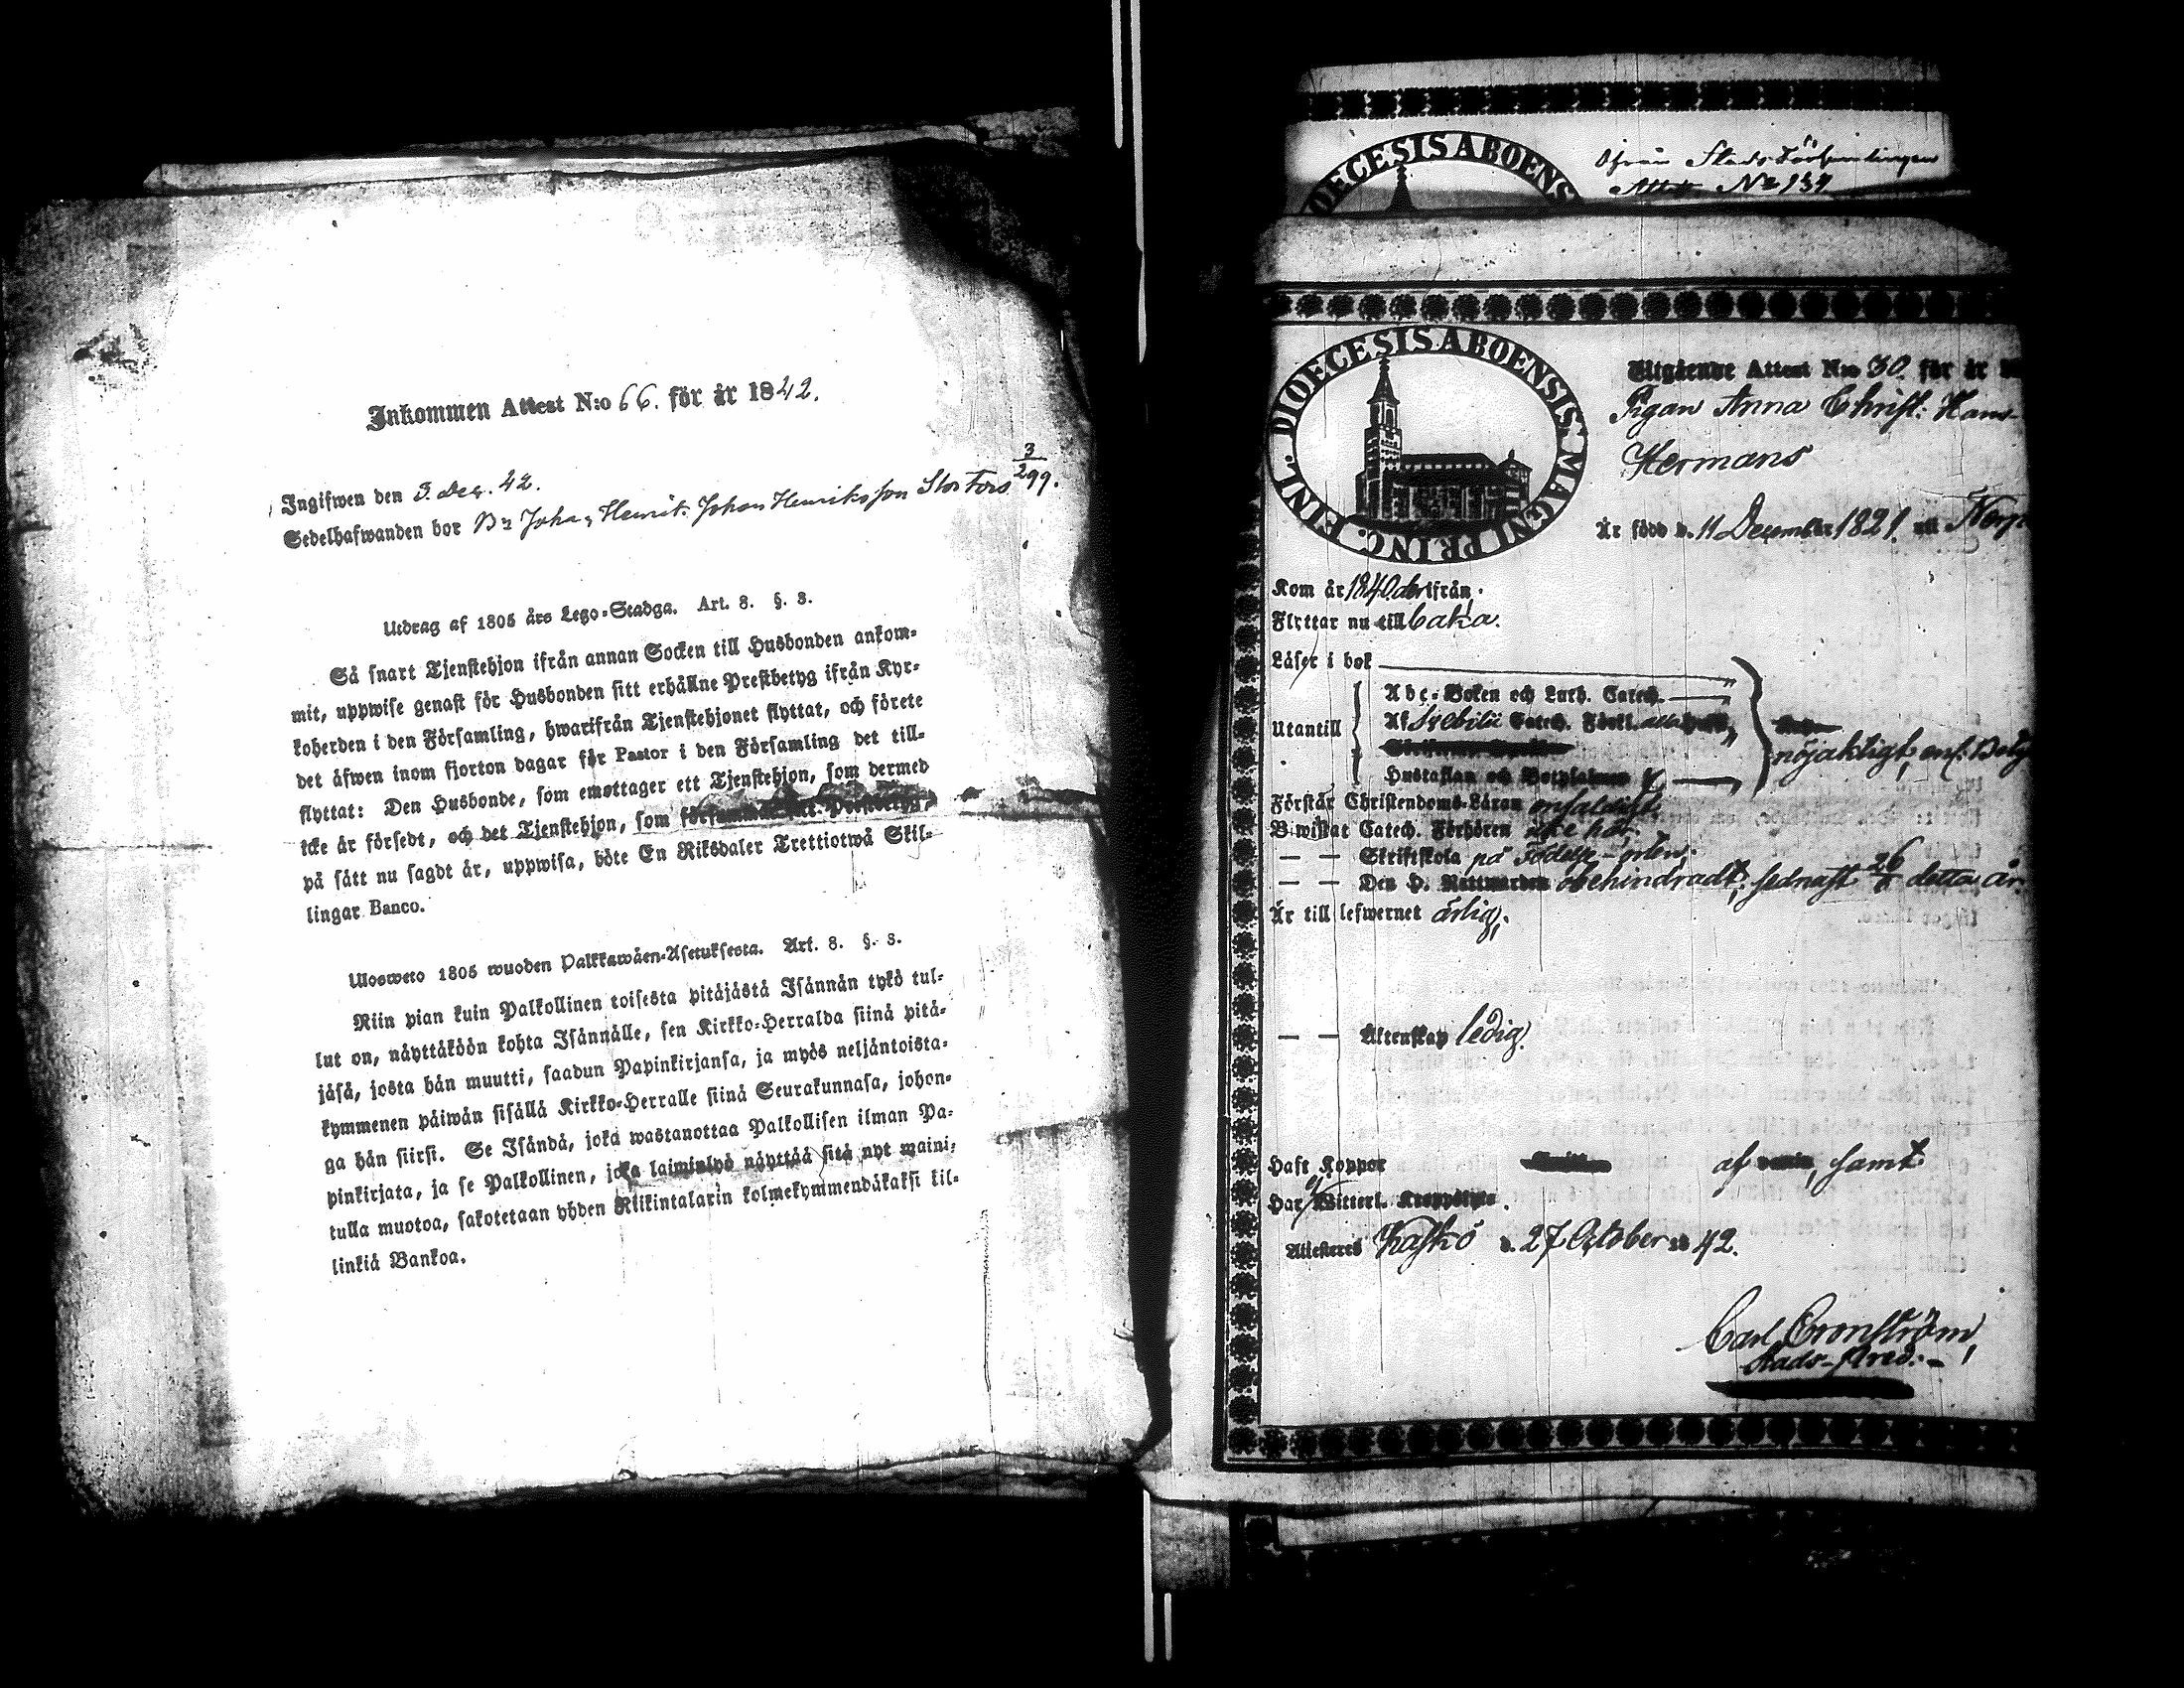 Inkommen Attest N:o 66. för år 1842.
Ingifwen den 3. Dec. 42.
3
299.
Sedelhafwanden bor Johan Henriksson Stor Fors
Utdrag af 1805 års Lego-Stadga. Art. 8. §. 3.
Så snart Tjenstehjon ifrån annan Socken till Husbonden ankom-
mit, uppwise genast för Husbonden sitt erhållne Prestbetyg ifrån Kyr-
koherden i den Församling, hwarifrån Tjenstehjonet flyttat, och förete
det äfwen inom fjorton dagar för Pastor i den Församling det till-
flyttat: Den Husbonde, som emottager ett Tjenstehjon, som dermed
icke är försedt, och det Tjenstehjon, som försummar sitt Prestbetyg,
på sätt nu sagdt är, uppwisa, böte En Riksdaler Trettiotwå Skil-
lingar Banco.
Ulosweto 1805 wuoden Palkkawäen-Asetuksesta. Art. 8. §. 3.
Niin pian kuin Palkollinen toisesta pitäjästä Isännän tykö tul-
lut on, näyttäköön kohta Isännälle, sen Kirkko-Herralda siinä pitä-
jäsä, josta hän muutti, saadun Papinkirjansa, ja myös neljäntoista-
kymmenen päiwän sisällä Kirkko-Herralle siinä Seurakunnasa, johon-
ga hän siirsi. Se Isändä, joka wastanottaa Palkollisen ilman Pa-
pinkirjata, ja se Palkollinen, joka laiminlyö näyttää sitä nyt maini-
tulla muotoa, sakotetaan yhden Riikintalarin kolmekymmendäkaksi kil-
linkiä Bankoa.
DIOECESIS ABOENS
Stads Församlingen
N:o 139
DIOECESIS ABOENSIS MAGNI PRINC. FINL.
Utgående Attest N:o 30 för år
Pigan Anna Christ: Hans-
Hermans
Är född d. 11 December 1821. uti Nerp
Kom år 1840 derifrån.
Flyttar nu tillbaka.
Läser i bok
Utantill
Abc-Boken och Luth. Catech.
Af Svebilii Catech. Förkl. alla
Hustaflan och Botpsalmen
nöjaktigt, enl. Betyg
Förstår Christendoms-Läran enfaldigt
Bewistat Catech. Förhören icke här.
— — Skriftskola på Födelse-orten,
— — Den H. Nattwarden obehindradt, sednast 26 detta år.
Är till lefwernet ärlig,
— — Äktenskap ledig.
Haft Koppor af samt
Har ej Witterl. Kroppslyte.
Attesteres Kaskö d. 27 October 1842.
Carl Cronström,
Stads-Pred.